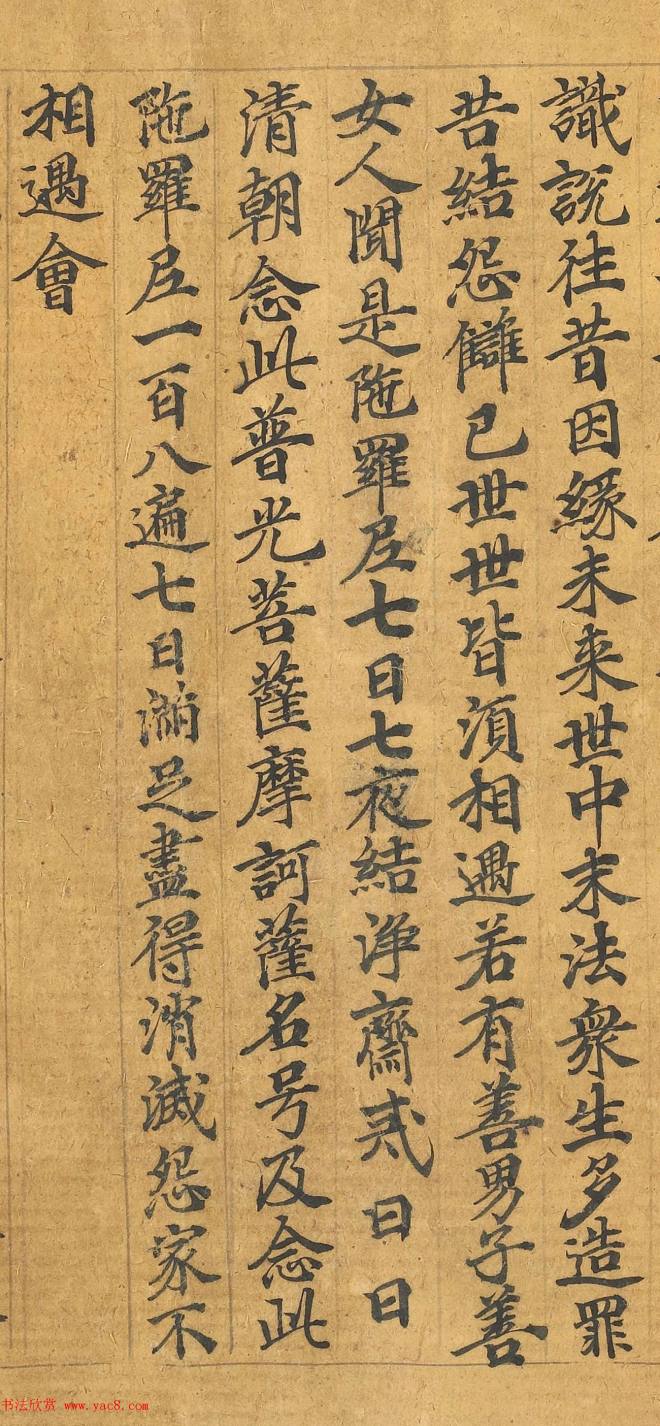 識說往昔因緣未来世中末法衆生多造罪
苦結怨讎已世世皆須相遇若有善男子善
女人聞是陁羅尼七日七夜結浄齋戒日日
清朝念此普光菩薩摩訶薩名号及念此
陁羅尼一百八遍七日滿足盡得消滅怨家不
相遇會
书法欣赏 www.yac8.com